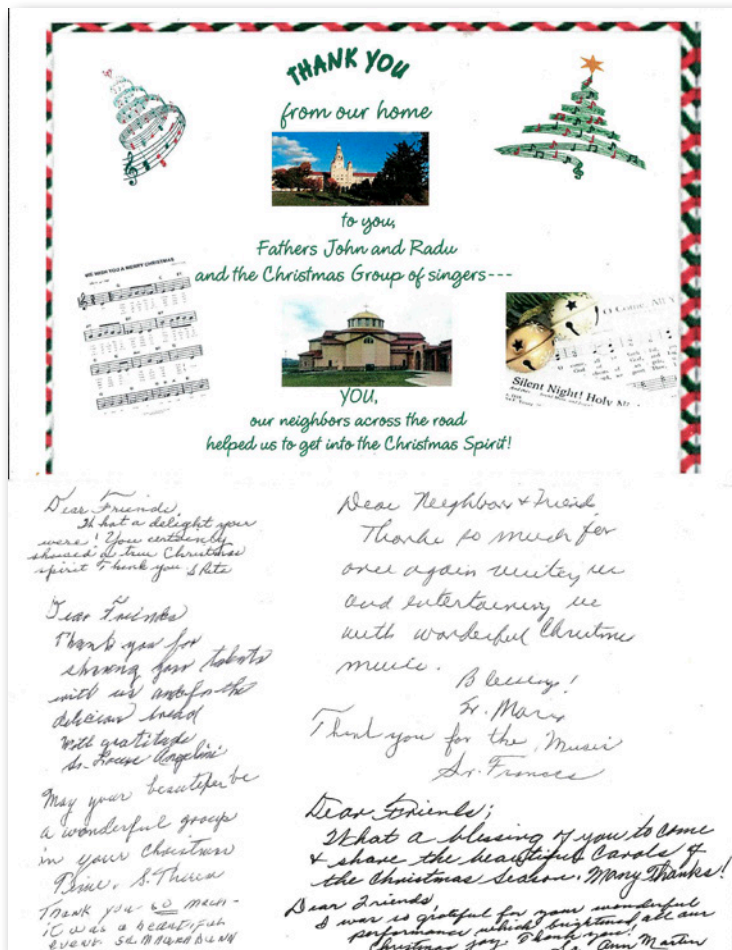 THANK YOU
from our home
to you,
Fathers John and Radu
and the Christmas Group of singers---
WE WISH YOU A MERRY CHRISTMAS
O Come, All Y
Silent Night! Holy
YOU,
our neighbors across the road
helped us to get into the Christmas Spirit!
Dear Friends,
What a delight your
were! You certainly
showed a true Christmas
spirit Thank you. S Rita
Dear Friends
Thank you for
sharing your talents
with us and for the
delicious bread
With gratitude
Sr. Louise Angelini
May your
a wonderful group
in your Christmas
Time. S. Theresa
THANK YOU SO much -
it was a beautiful
event. SR. MAURA DUNN
Dear Neighbors & Friends
Thanks so much for
once again visiting us
and entertaining us
with wonderful Christmas
music.
Blessings!
Sr. Mary
Thank you for the Music
Sr. Frances
Dear Friends;
What a blessing of you to come
& share the beautiful Carols of
the Christmas Season. Many Thanks!
Dear Friends
I was so grateful for your wonderful
performance which brightened all our
Christmas joy Thank you!
Ann Martin